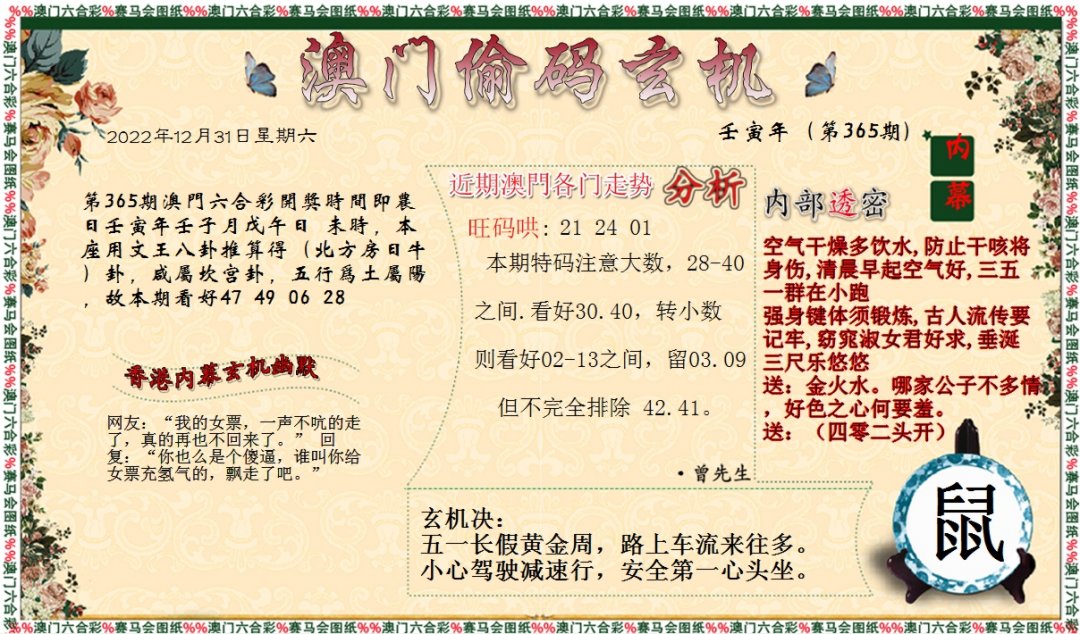 %%澳门六合彩%赛马会图纸%%澳门六合彩%赛马会图纸%%澳门六合彩%赛马会图纸%%澳门六合彩%赛马会图纸%%澳门六合彩%赛马会图纸%%澳门六合彩%赛马会图纸
澳门偷码玄机
2022年12月31日星期六
壬寅年（第365期）
内幕
第365期澳門六合彩開獎時間即農
日壬寅年壬子月戊午日 未時，本
座用文王八卦推算得（北方房日牛
）卦，威屬坎宫卦，五行爲土屬陽
，故本期看好47 49 06 28
近期澳門各门走势 分析
旺码哄: 21 24 01
本期特码注意大数，28-40
之间.看好30.40，转小数
则看好02-13之间，留03.09
但不完全排除 42.41。
·曾先生
内部透密
空气干燥多饮水,防止干咳将
身伤,清晨早起空气好,三五
一群在小跑
强身键体须锻炼,古人流传要
记牢,窈窕淑女君好求,垂涎
三尺乐悠悠
送：金火水。哪家公子不多情
，好色之心何要羞。
送：（四零二头开）
香港内幕玄机幽默
网友：“我的女票，一声不吭的走
了，真的再也不回来了。” 回
复：“你也么是个傻逼，谁叫你给
女票充氢气的，飘走了吧。”
玄机决：
五一长假黄金周，路上车流来往多。
小心驾驶减速行，安全第一心头坐。
鼠
%%澳门六合彩%赛马会图纸%%澳门六合彩%赛马会图纸%%澳门六合彩%赛马会图纸%%澳门六合彩%赛马会图纸%%澳门六合彩%赛马会图纸%%澳门六合彩%赛马会图纸